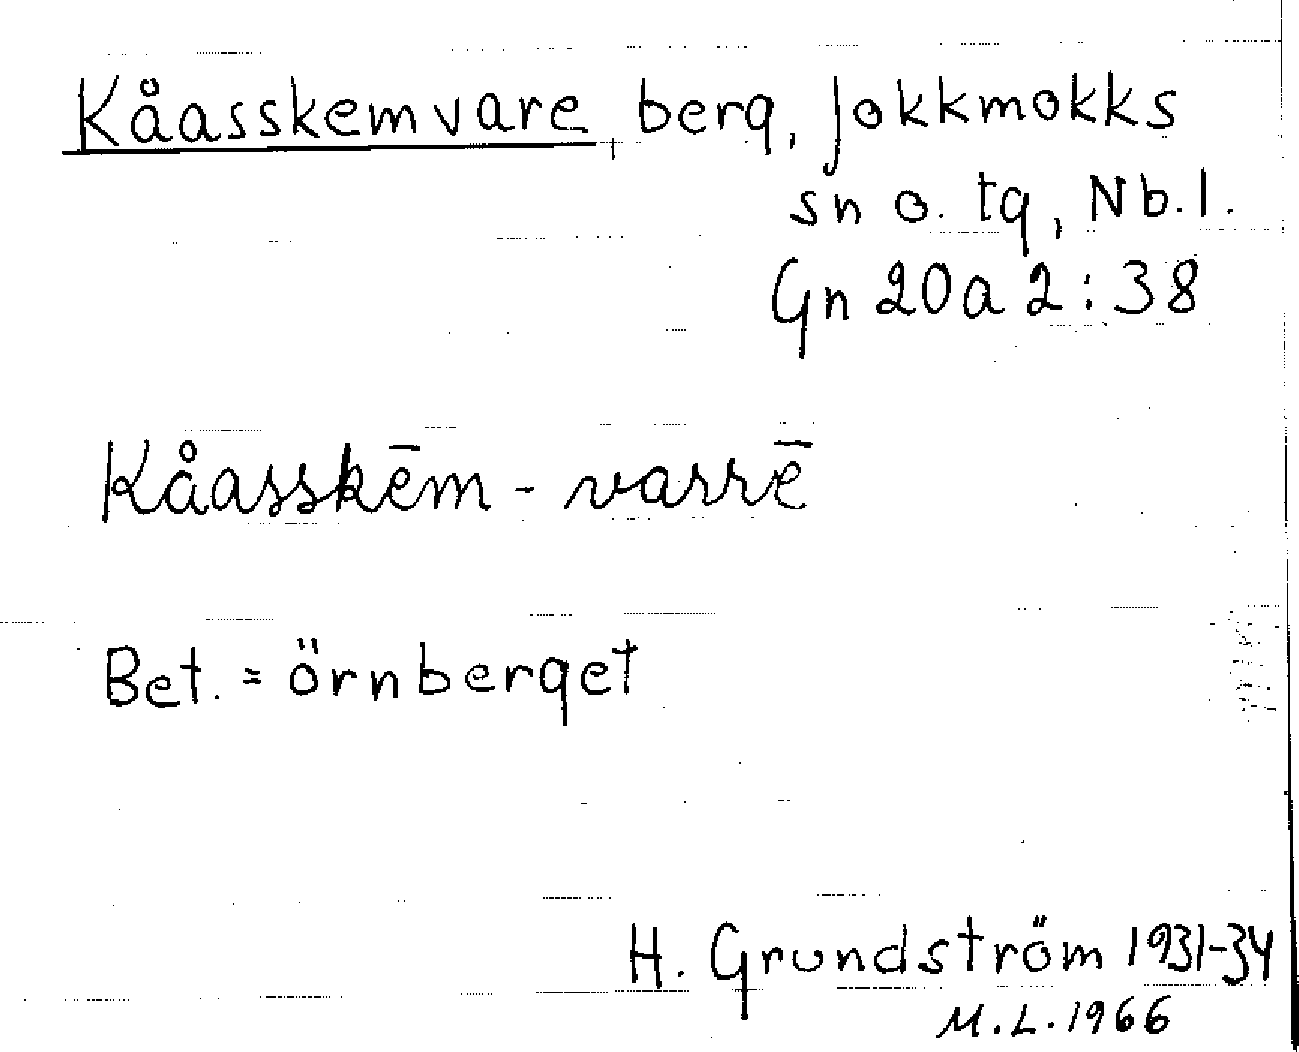 Kåasskemvare, berg, Jokkmokks
sn o. tg, Nb.l.
Gn 20a 2:38
Kåasskēm-varrē
Bet. = örnberget
H. Grundström 1931-34
M.L. 1966